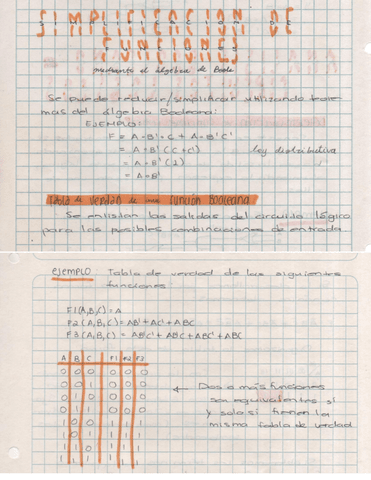 SIMPLIFICACION DE
FUNCIONES
mediante el álgebra de Boole
Se puede reducir/simplificar utilizando teore-
mas del álgebra Booleana:
EJEMPLO:
F = A·B'·C + A·B'C'
= A·B'(C+C') ley distributiva
= A·B'(1)
= A·B'
Tabla de verdad de una función Booleana
Se enlistan las salidas del circuito lógico
para las posibles combinaciones de entrada
ejemplo Tabla de verdad de las siguientes
funciones
F1(A,B,C)=A
F2(A,B,C)=AB'+AC'+ABC
F3(A,B,C)=AB'C'+AB'C+ABC'+ABC
A B C F1 F2 F3
0 0 0 0 0 0
0 0 1 0 0 0
0 1 0 0 0 0
0 1 1 0 0 0
1 0 0 1 1 1
1 0 1 1 1 1
1 1 0 1 1 1
1 1 1 1 1 1
← Dos o más funciones
son equivalentes si
y solo si tienen la
misma tabla de verdad